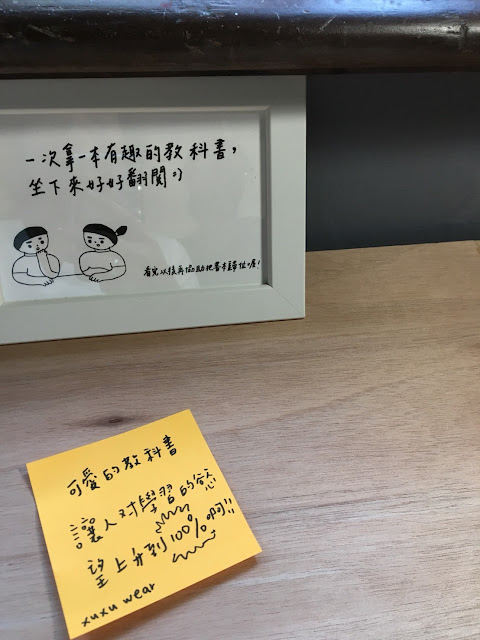 一次拿一本有趣的教科書,
坐下來好好翻閱:)
看完以後再協助把書本歸位喔!
可愛的教科書
讓人对學習的慾
望上升到100%啊!!
xuxu wear